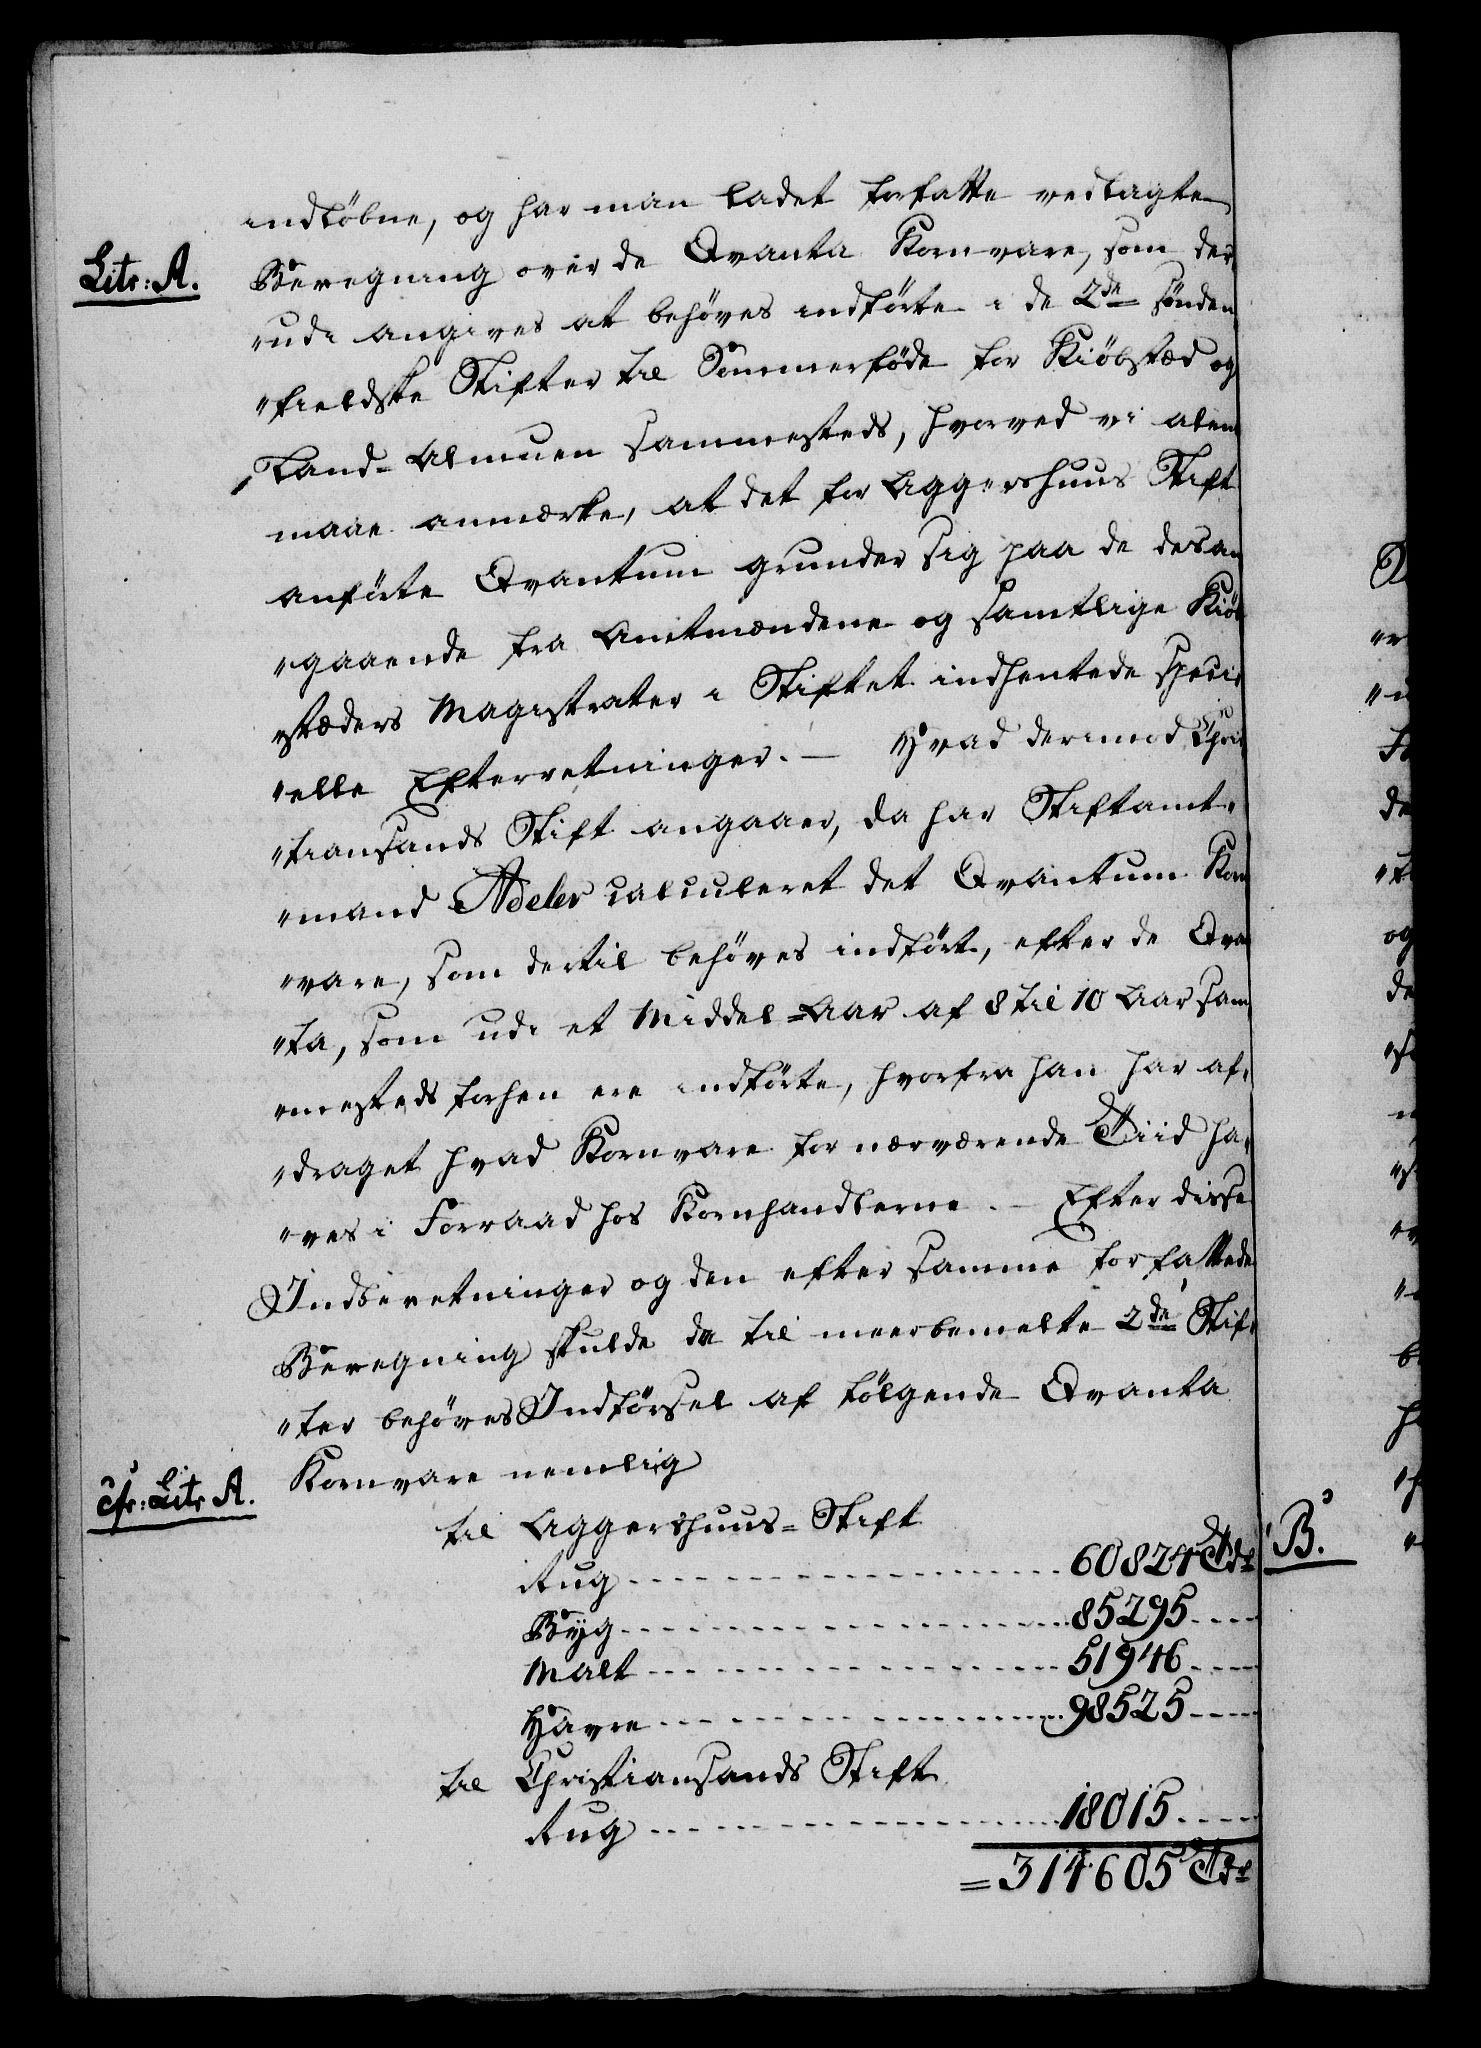 indløbne, og har man ladet forfatte vedlagte
Litr: A.
Beregning over de Qvanta Kornvare, som der„
„udi angives at behöves indförte i de 2de sönden
„fieldske Stifter til Sommerföde for Kiöbsted og
Land-Almuen sammesteds, hvorved vi alene
maae anmærke, at det for Aggershuus Stift
anförte Qvantum grunder sig paa de desan
„gaaende fra Amtmændene og samtlige Kiöb
„stæders Magistrater i Stiftet indhentede speci„
„elle Efterretninger. — Hvad derimod Chri
„stiansands Stift angaaer, da har Stiftamt„
„mand Adeler calculeret det Qvantum Korn
„vare, som dertil behöves indfört, efter de Qvan
„ta, som udi et Middel-Aar af 8 til 10 Aar sam
„mesteds forhen ere indförte, hvorfra han har af„
„draget hvad Kornvare for nærværende Tiid ha„
„ves i Forraad hos Kornhandlerne. — Efter disse
Indberetninger og den efter samme forfattede
Beregning skulde da til meerbemelte 2de Stif„
„ter behöves Indförsel af fölgende Qvanta
Kornvare nemlig
cfr: Litr A.
til Aggershuus-Stift
Rug 60824 Tdr
Byg 85295
Malt 51946
Havre 98525
til Christiansands Stift
Rug 18015
= 314605 Tdr
B.